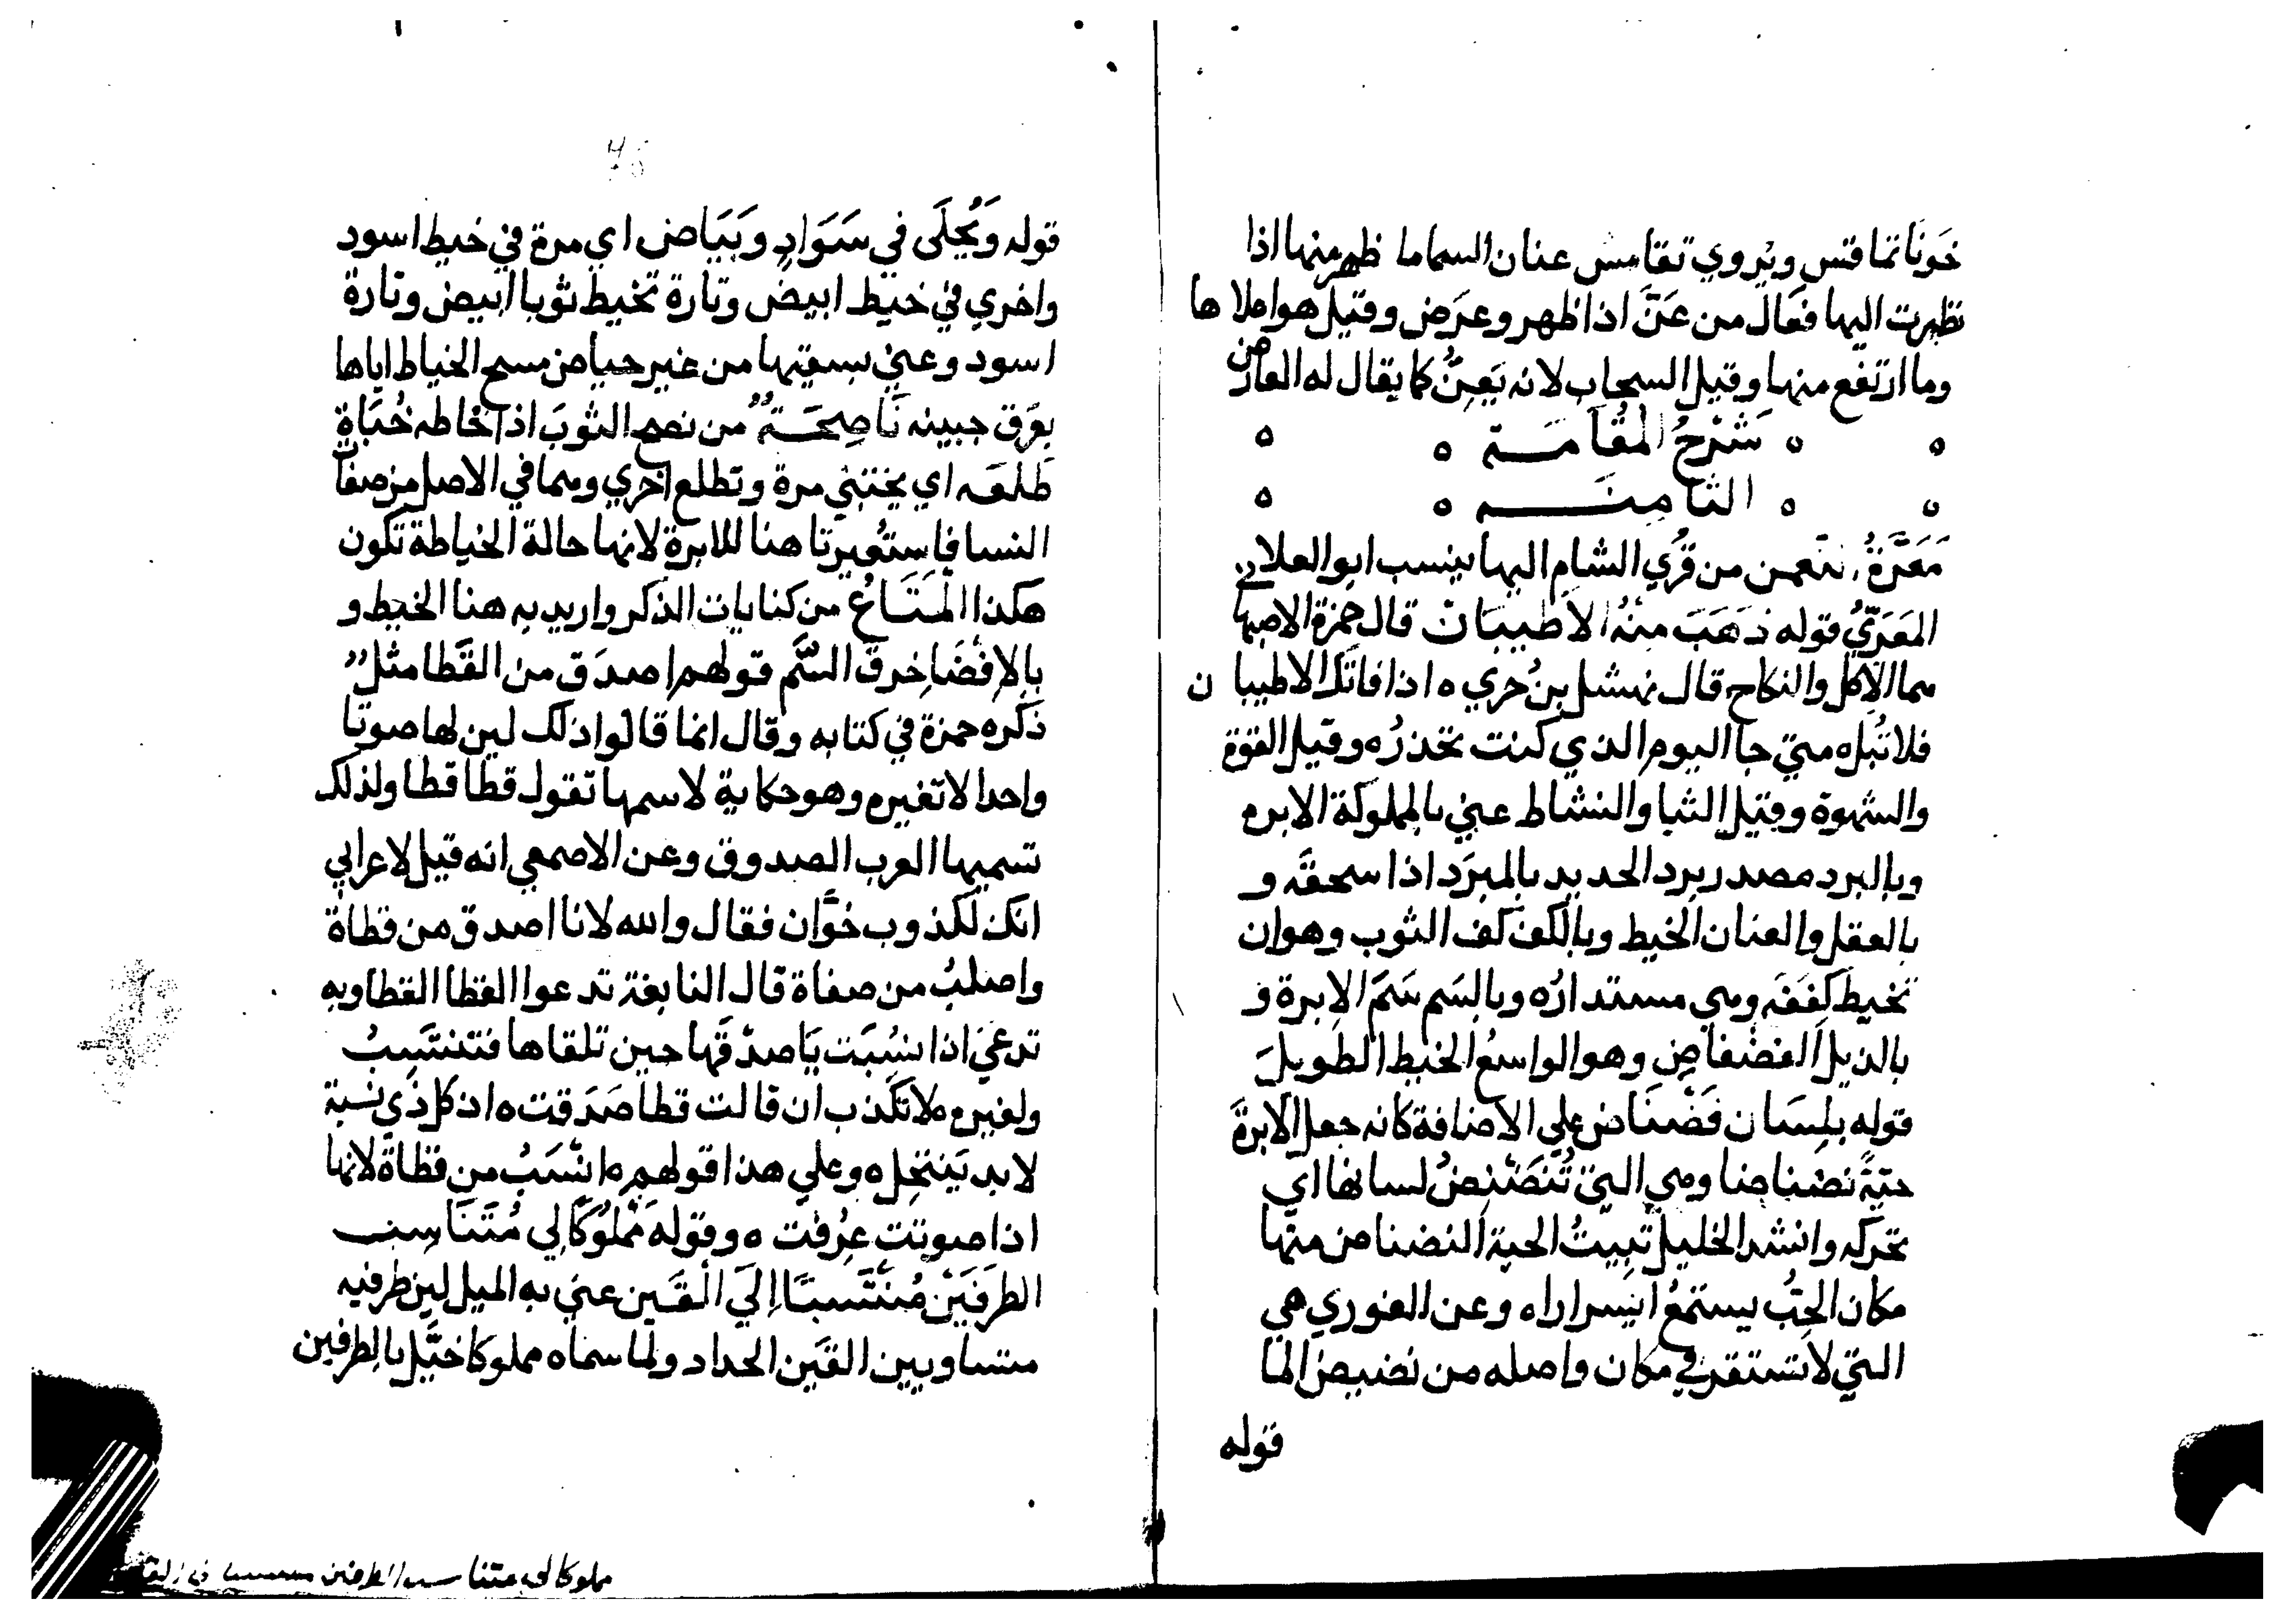 خَونًا تماقس ويُروي تقامس عنان السما ما ظهر منها اذا
نظرت اليها فعَال من عَنَّ اذا ظهر وعرَض وقيل هو املا ها
وما ارتفع منها وقيل السحاب لانه يَعِنُّ كما يقال له العارض
شَرْحُ المَقَامَــة
الثامِنَــــه
مَعَرَّةُ النعمن من قُري الشام اليها ينسب ابو العلا
المعَرّيُّ قوله ذَهَبَ مِنْهُ الأطيبَان قال حمزة الاصبها
هما الاكل والنكاح قال نهشل بنُ حري ه اذا فاتك الاطيبا ن
فلا تُبل ه متي جا اليوم الذي كنت تحذرُه وقيل القوة
والشهوة وقيل الشبا والنشاط عني بالمملوكة الابره
وبالبرد مصدر برد الحديد بالمبرَد اذا سحقه و
بالعقل والعنان الخيط وبالكف كف الثوب وهو ان
تخيط كففَه وهي مستدارُه وبالسَم سَمّ الابرة و
بالذيل الفضفاضِ وهو الواسعُ الخيط الطويلَ
قوله بلِسَان نَضْنَاض علي الاضافة كانه جعل الابرةَ
حيّةً نضناضا وهي التي تُنَضْنِضُ لسانها اي
تحركه وانشد الخليل تَبِيتُ الحية النضناض منها
مكان الحِبّ يستمعُ السرارا ه وعن الغوري هي
التي لا تستقر في مكان واصله من نضيض الما
قوله
قوله وَيُجْلَى في سَوَادٍ وبَيَاض اي مرة في خيط اسود
واخري في خيط ابيض وتارة تخيط ثوبا ابيض وتارة
اسود وعني بسقيها من غير حياض مسح الخياط اياها
بعَرق جبينه نَاصِحَــةٌ من نصح الثوبَ اذا خاطه خُبَأة
طُلعَه اي يختبي مرة وتطلع اخري وهما في الاصل من صفات
النسا فاستُعيرتا هنا للابرة لانها حالة الخياطة تكون
هكذا المَتَاعُ من كنايات الذكر واريد به هنا الخيط و
بالإفضَا خرق السَّم قولهم اصدَق من القَطا مثلٌ
ذكره حمزة في كتابه وقال انما قالوا ذلك لين لها صوتا
واحدا لا تغيره وهو حكاية لاسمها تقول قطا قطا ولذلك
تسميها العرب الصدوق وعن الاصمعي انه قيل لاعرابي
انك لكذوب خوَّان فقال والله لانا اصدق من قطاة
واصلبُ من صفاة قال النابغة تدعوا القطا القطا وبه
تدعي اذا نُسِبَت يَا صدْقَها حين تلقاها فتنتسِبُ
ولغيره لا تكذب ان قالت قطا صَدَقت ه اذ كل ذي نسبة
لا بد يَنتحِل ه وعلي هذا قولهم ه انْسَبُ من قطاة لانها
اذا صوتت عرُفت ه وقوله مَمْلُوكًا لي مُتَنَاسِبـ
الطرَفَيْن مُنْتَسِبًا إلَى القَين عني به الميل لين طرفيه
متساويين القَين الحداد ولما سماه مملوكا خيَّل بالطرفين
مملوكا لي متناسب الطرفين